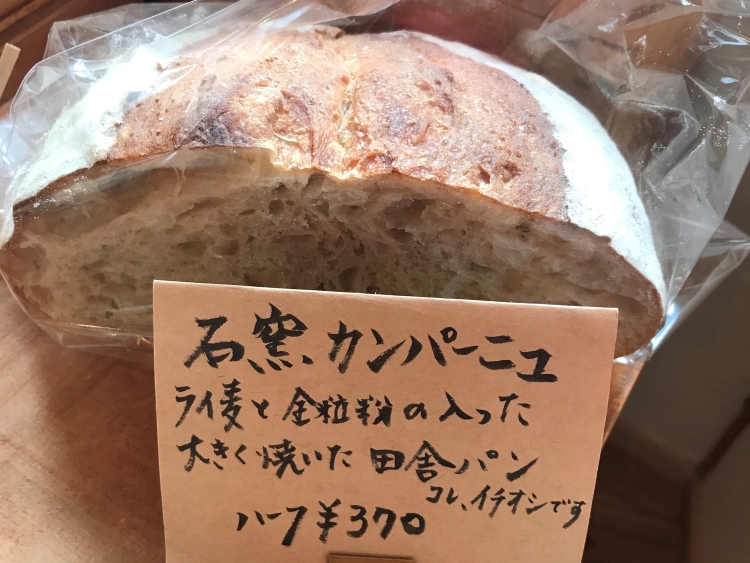 石窯カンパーニュ
ライ麦と全粒粉の入った
大きく焼いた田舎パン
コレ、イチオシです
ハーフ¥370